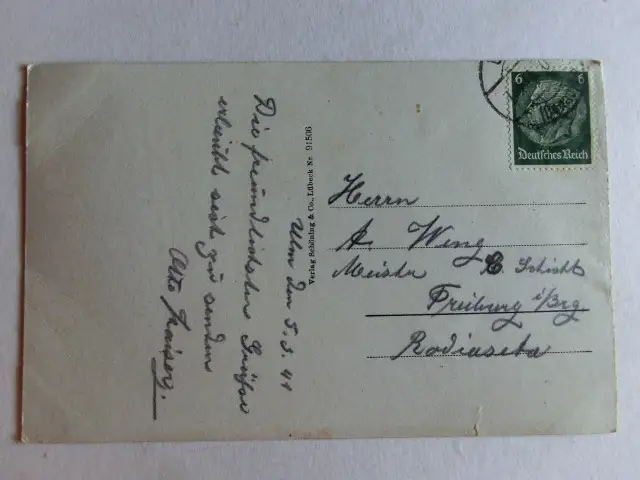 Ulm den 5.3.41
Die freundlichsten Grüße
erlaubt sich zu senden
Otto Kaiser.
Verlag Schöning & Co., Lübeck Nr. 91506
6 6
Deutsches Reich
Herrn
A. Weng
Meister C Schicht
Freiburg i/Brg
Rodiaseta